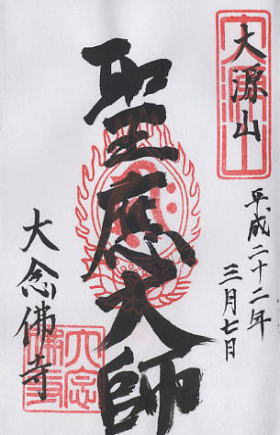 大源山
平成二十二年
三月七日
聖應大師
大念佛寺